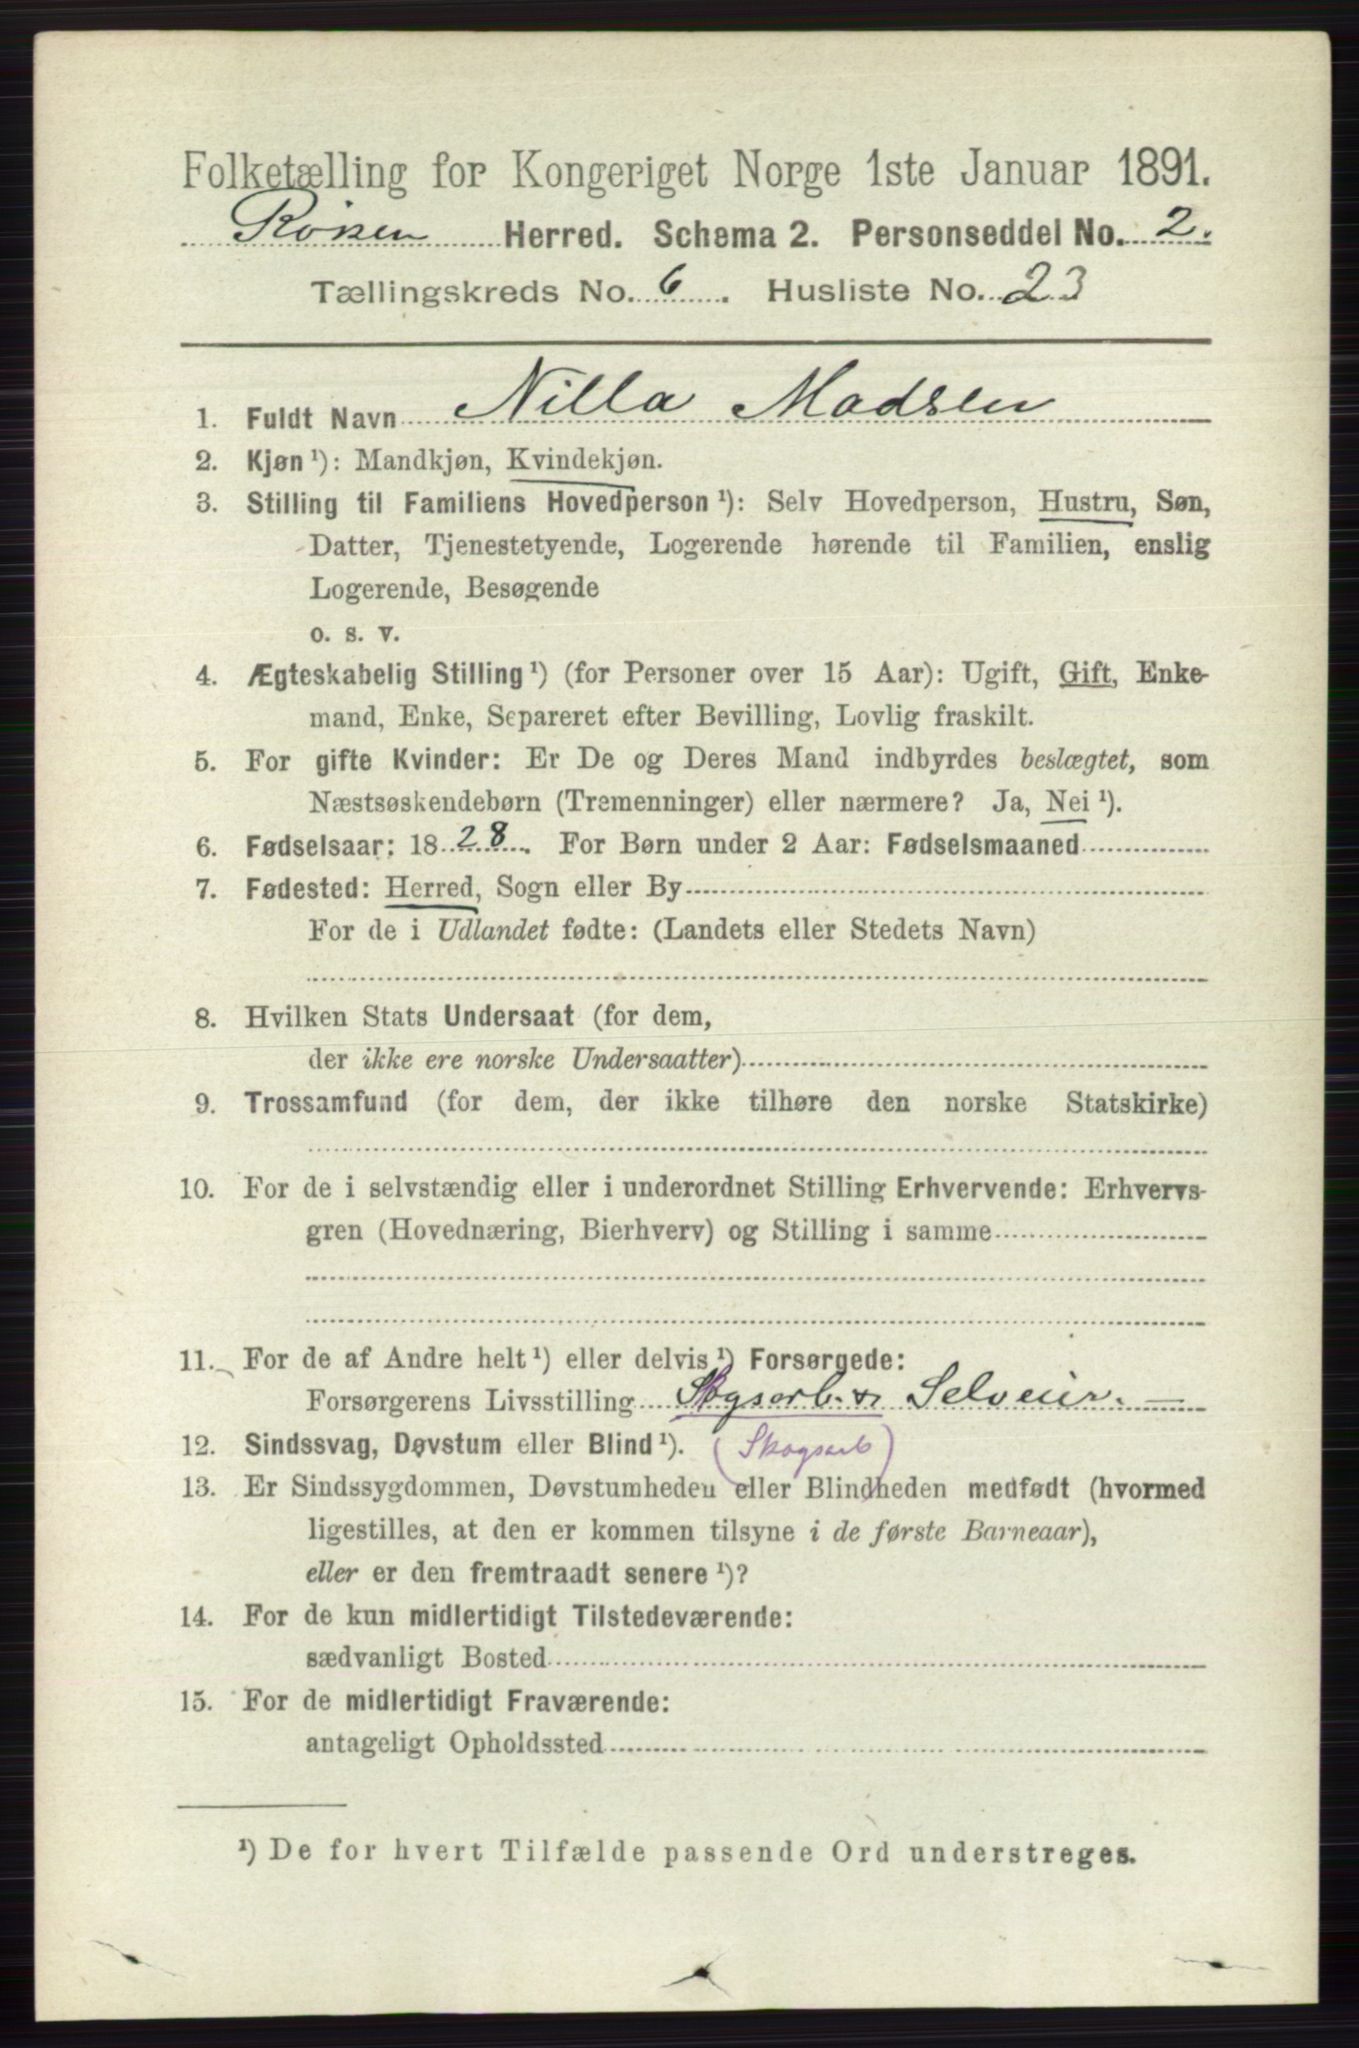 Folketælling for Kongeriget Norge 1ste Januar 1891.
Röken Herred. Schema 2. Personseddel No. 2.
Tællingskreds No. 6. Husliste No. 23
1. Fuldt Navn Nilla Madsen
2. Kjøn ¹): Mandkjøn, Kvindekjøn.
3. Stilling til Familiens Hovedperson ¹): Selv Hovedperson, Hustru, Søn,
Datter, Tjenestetyende, Logerende hørende til Familien, enslig
Logerende, Besøgende
o. s. v.
4. Ægteskabelig Stilling ¹) (for Personer over 15 Aar): Ugift, Gift, Enke-
mand, Enke, Separeret efter Bevilling, Lovlig fraskilt.
5. For gifte Kvinder: Er De og Deres Mand indbyrdes beslægtet, som
Næstsøskendebørn (Tremenninger) eller nærmere? Ja, Nei ¹).
6. Fødselsaar: 18 28. For Børn under 2 Aar: Fødselsmaaned
7. Fødested: Herred, Sogn eller By
For de i Udlandet fødte: (Landets eller Stedets Navn)
8. Hvilken Stats Undersaat (for dem,
der ikke ere norske Undersaatter)
9. Trossamfund (for dem, der ikke tilhøre den norske Statskirke)
10. For de i selvstændig eller i underordnet Stilling Erhvervende: Erhvervs-
gren (Hovednæring, Bierhverv) og Stilling i samme
11. For de af Andre helt ¹) eller delvis ¹) Forsørgede:
Forsørgerens Livsstilling Skogsarb. & Selveier. —
12. Sindssvag, Døvstum eller Blind ¹). (Skogsarb)
13. Er Sindssygdommen, Døvstumheden eller Blindheden medfødt (hvormed
ligestilles, at den er kommen tilsyne i de første Barneaar),
eller er den fremtraadt senere ¹)?
14. For de kun midlertidigt Tilstedeværende:
sædvanligt Bosted
15. For de midlertidigt Fraværende:
antageligt Opholdssted
¹) De for hvert Tilfælde passende Ord understreges.